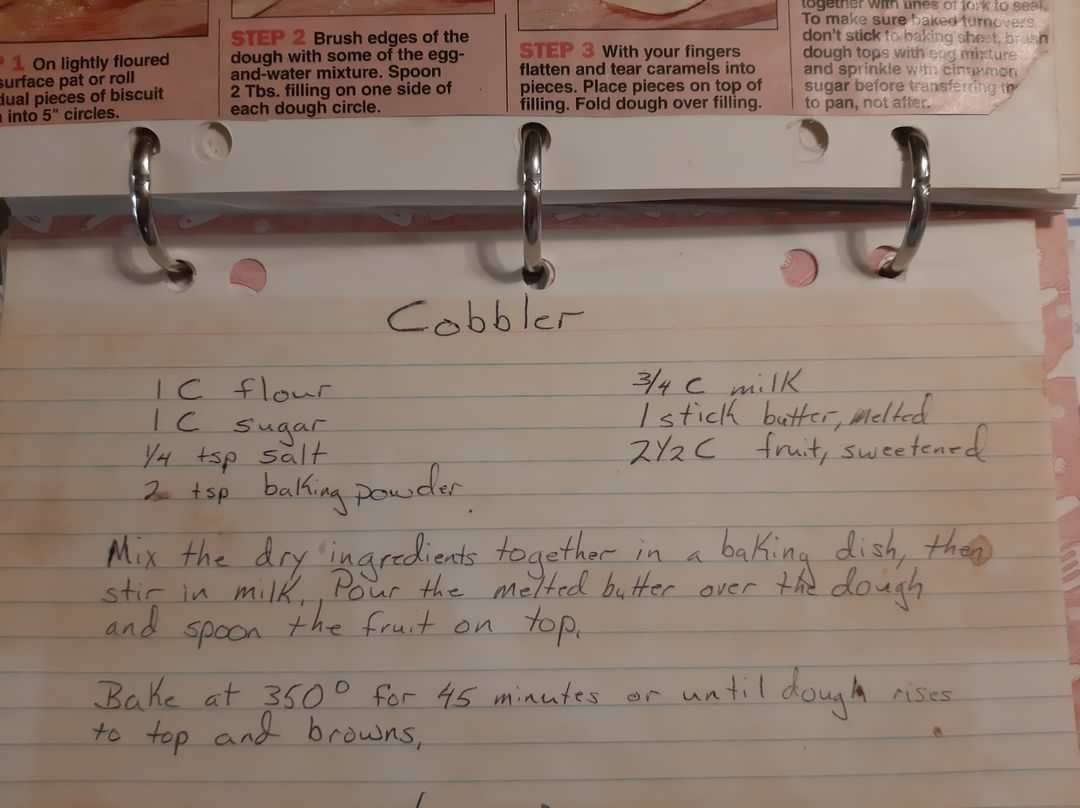 1 On lightly floured
surface pat or roll
dual pieces of biscuit
into 5" circles.
STEP 2 Brush edges of the
dough with some of the egg-
and-water mixture. Spoon
2 Tbs. filling on one side of
each dough circle.
STEP 3 With your fingers
flatten and tear caramels into
pieces. Place pieces on top of
filling. Fold dough over filling.
together with tines of fork to seal.
To make sure baked turnovers
don't stick to baking sheet, brush
dough tops with egg mixture
and sprinkle with cinnamon
sugar before transferring
to pan, not after.
Cobbler
1 C flour
1 C sugar
1/4 tsp salt
2 tsp baking powder
3/4 C milk
1 stick butter, melted
2 1/2 C fruit, sweetened
Mix the dry ingredients together in a baking dish, then
stir in milk. Pour the melted butter over the dough
and spoon the fruit on top.
Bake at 350° for 45 minutes or until dough rises
to top and browns.